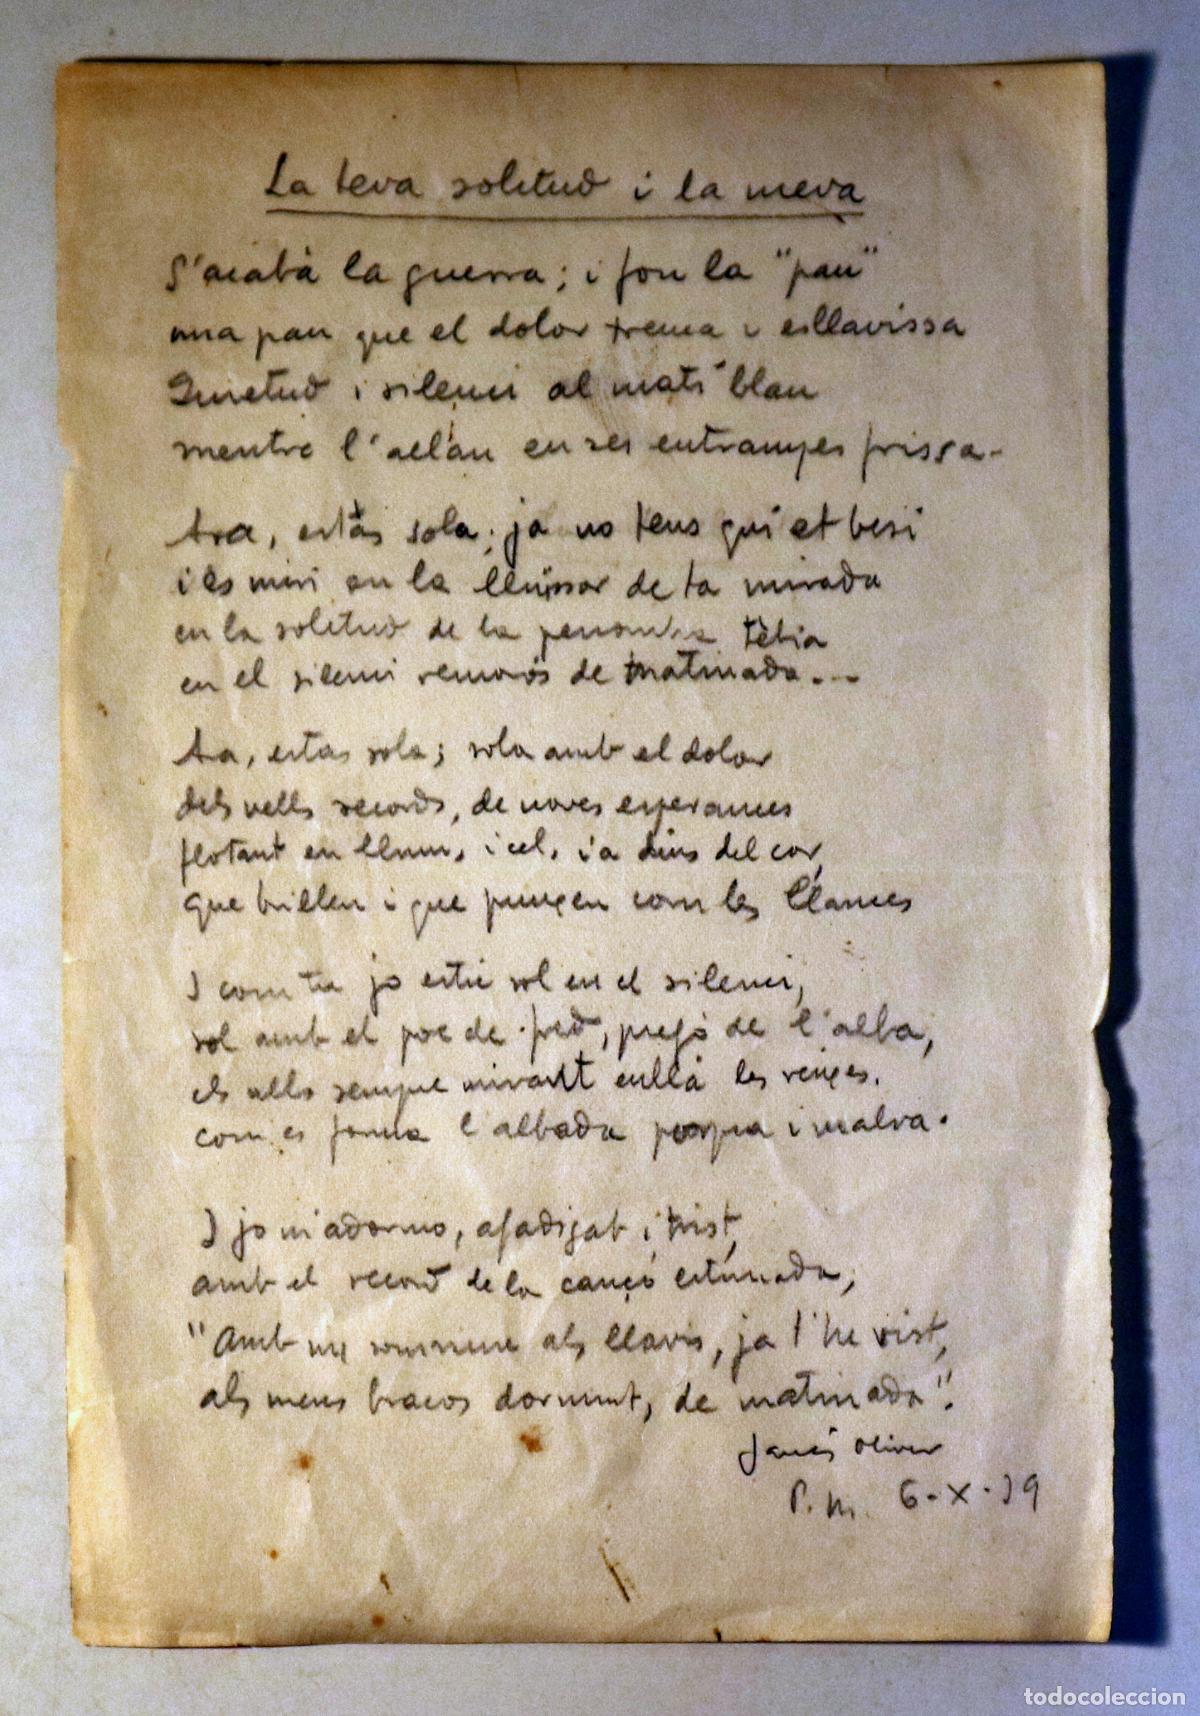 La teva solitud i la meva
S'acabà la guerra; i fou la "pau"
una pau que el dolor trenca i esllavissa
Quietud i silenci al matí blau
mentre l'allau en ses entranyes frissa.
Ara, estàs sola; ja no tens qui et besi
i es miri en la lluïssor de ta mirada
en la solitud de la penombra tèbia
en el silenci remorós de matinada...
Ara, estas sola; sola amb el dolor
dels vells records, de noves esperances
flotant en llum, i cel, i a dins del cor,
que brillen i que punxen com les llances
I com tu jo estic sol en el silenci,
sol amb el poc de fred, pregó de l'alba,
els ulls sempre mirant enllà les reixes.
com es forma l'albada porpra i malva.
I jo m'adormo, afadigat i trist,
amb el record de la cançó estimada,
"Amb un somriure als llavis, ja t'he vist,
als meus braços dormint, de matinada".
Janés Oliver
P.M. 6-X-39
todocoleccion